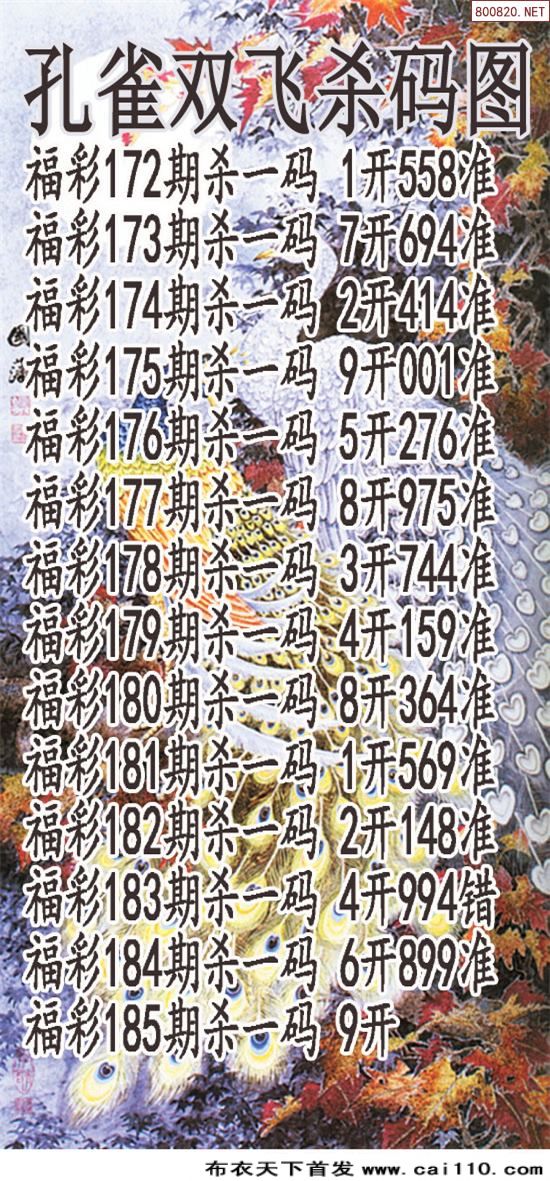 800820.NET
孔雀双飞杀码图
福彩172期杀一码 1开558准
福彩173期杀一码 7开694准
福彩174期杀一码 2开414准
福彩175期杀一码 9开001准
福彩176期杀一码 5开276准
福彩177期杀一码 8开975准
福彩178期杀一码 3开744准
福彩179期杀一码 4开159准
福彩180期杀一码 8开364准
福彩181期杀一码 1开569准
福彩182期杀一码 2开148准
福彩183期杀一码 4开994错
福彩184期杀一码 6开899准
福彩185期杀一码 9开
布衣天下首发 www.cai110.com